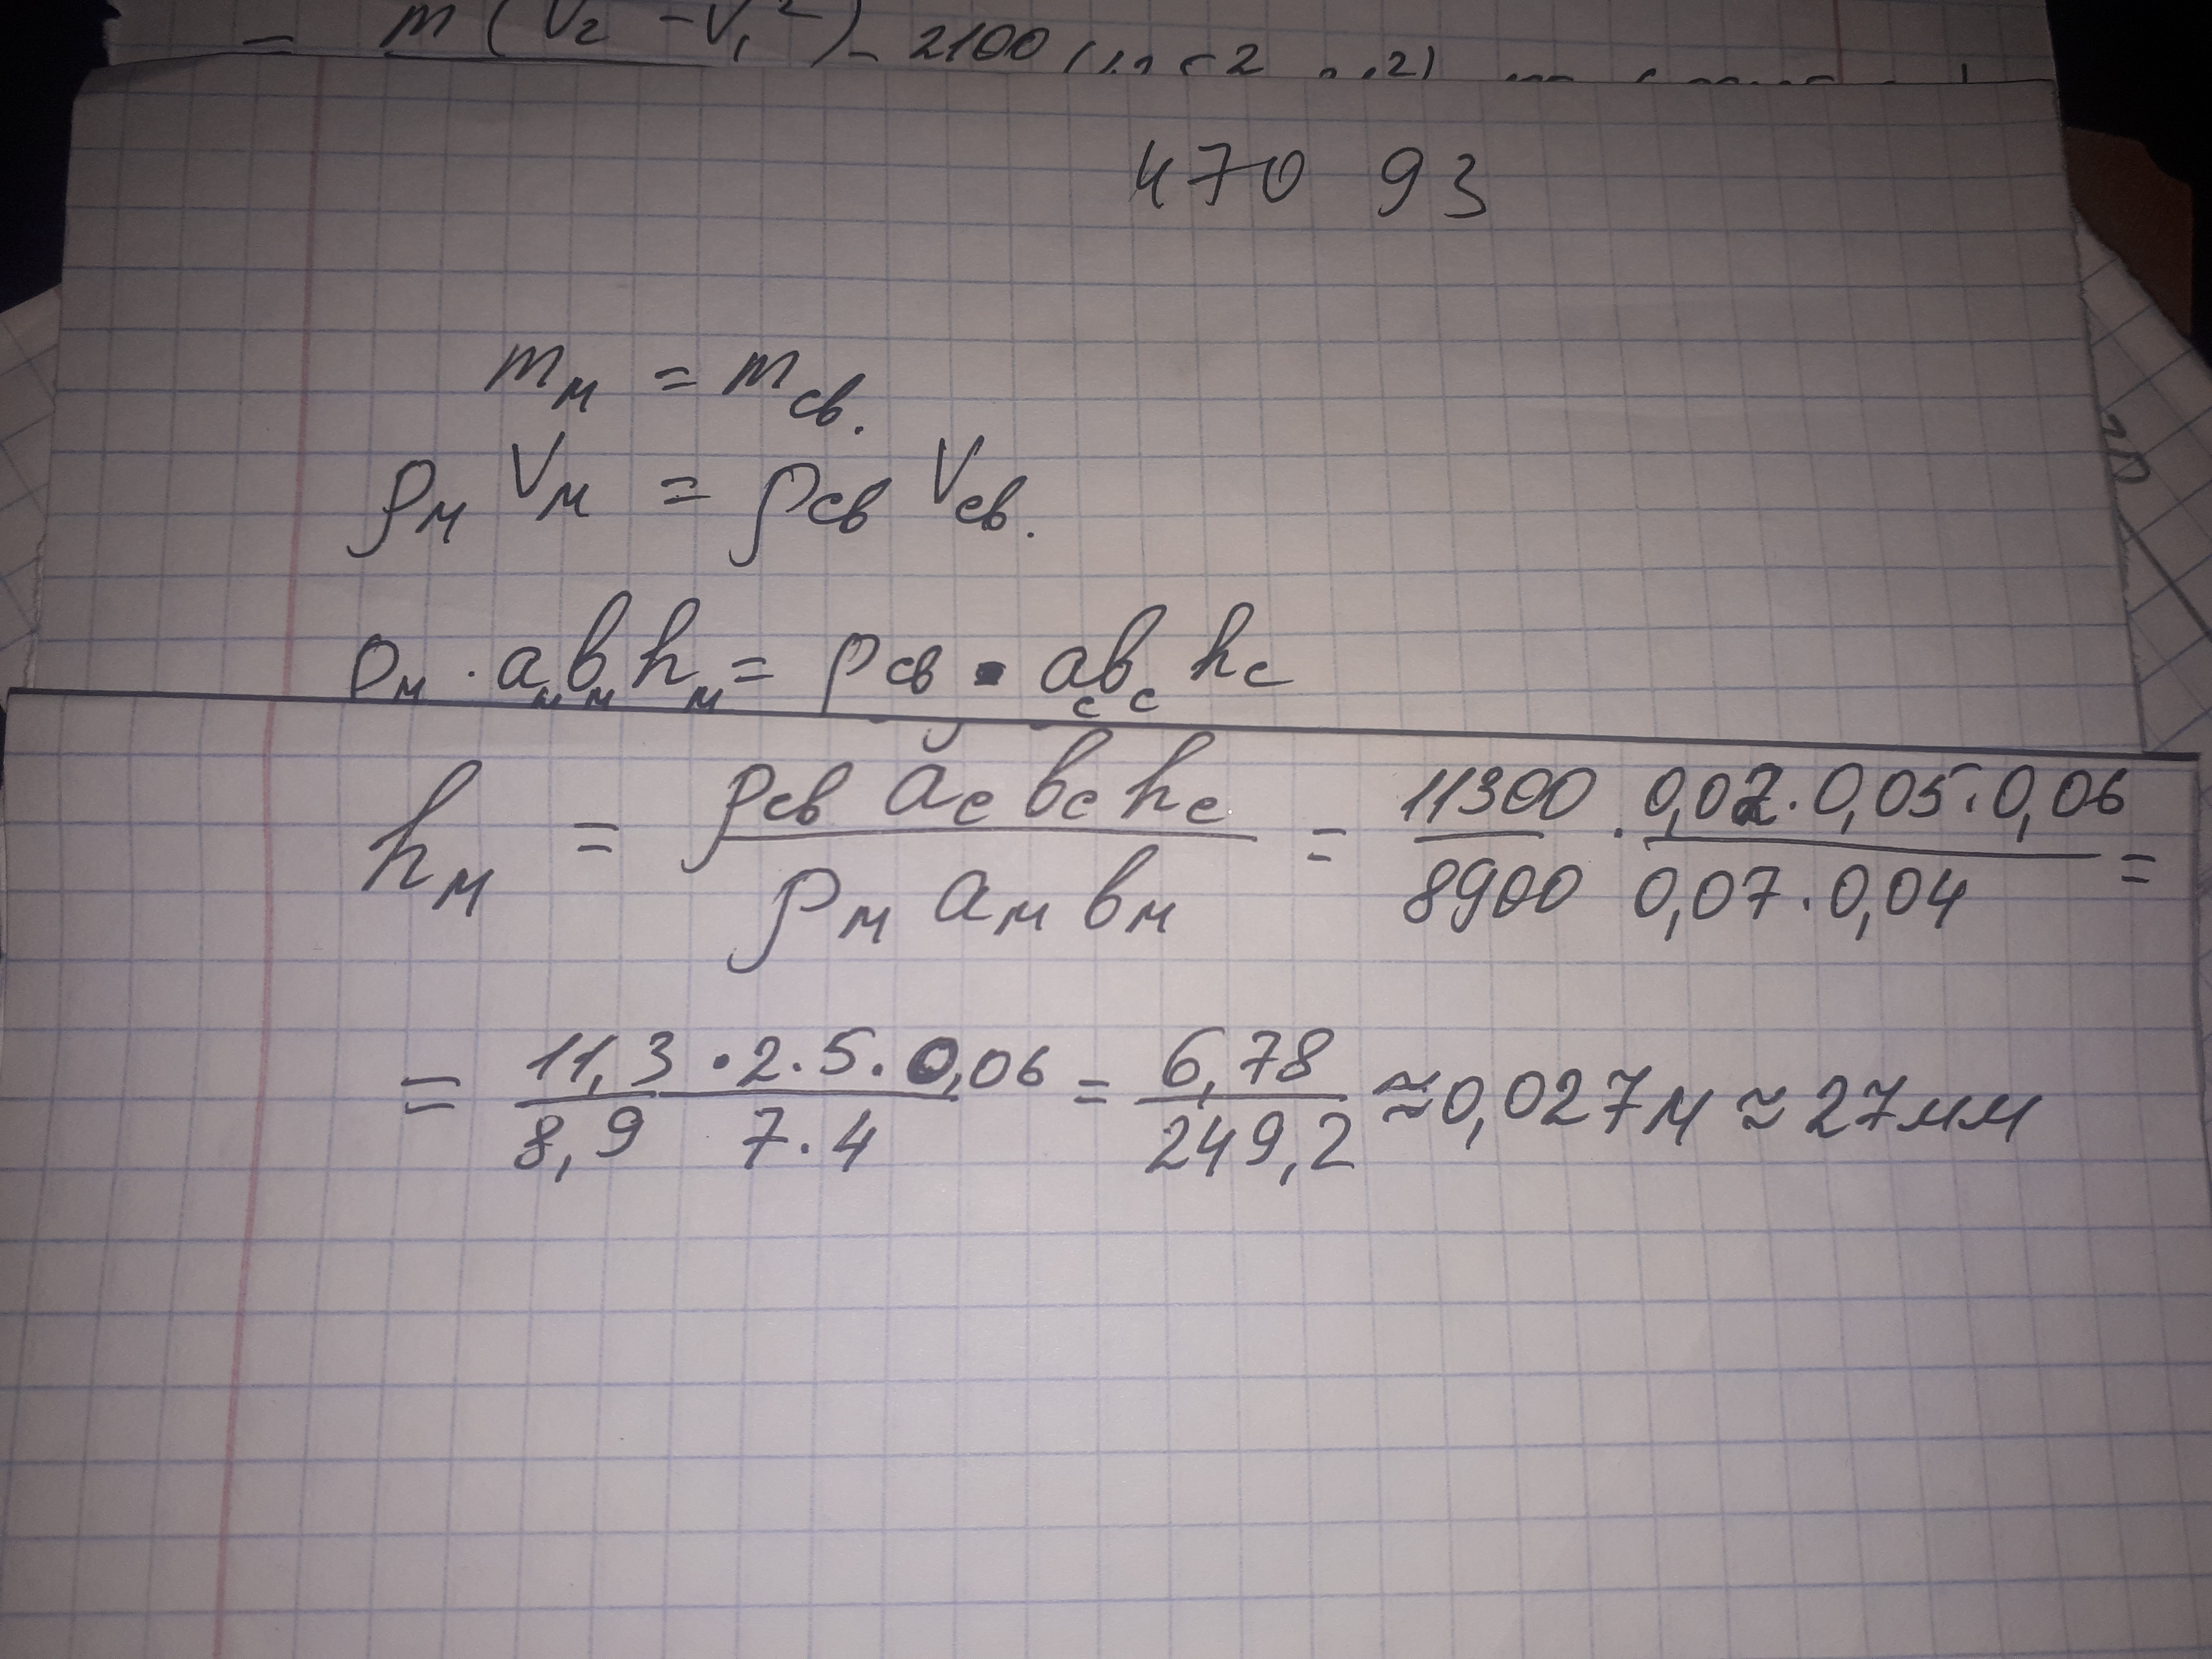 = m (V₂ - V₁²) - 2100
470 93
mм = mсв.
ρм Vм = ρсв Vсв.
ρм · aм bм hм = ρсв · aс bс hс
hм = ρсв aс bс hс / ρм aм bм = 11300 / 8900 · 0,02 · 0,05 · 0,06 / 0,07 · 0,04 =
= 11,3 · 2 · 5 · 0,06 / 8,9 7 · 4 = 6,78 / 249,2 ≈ 0,027 м ≈ 27 мм